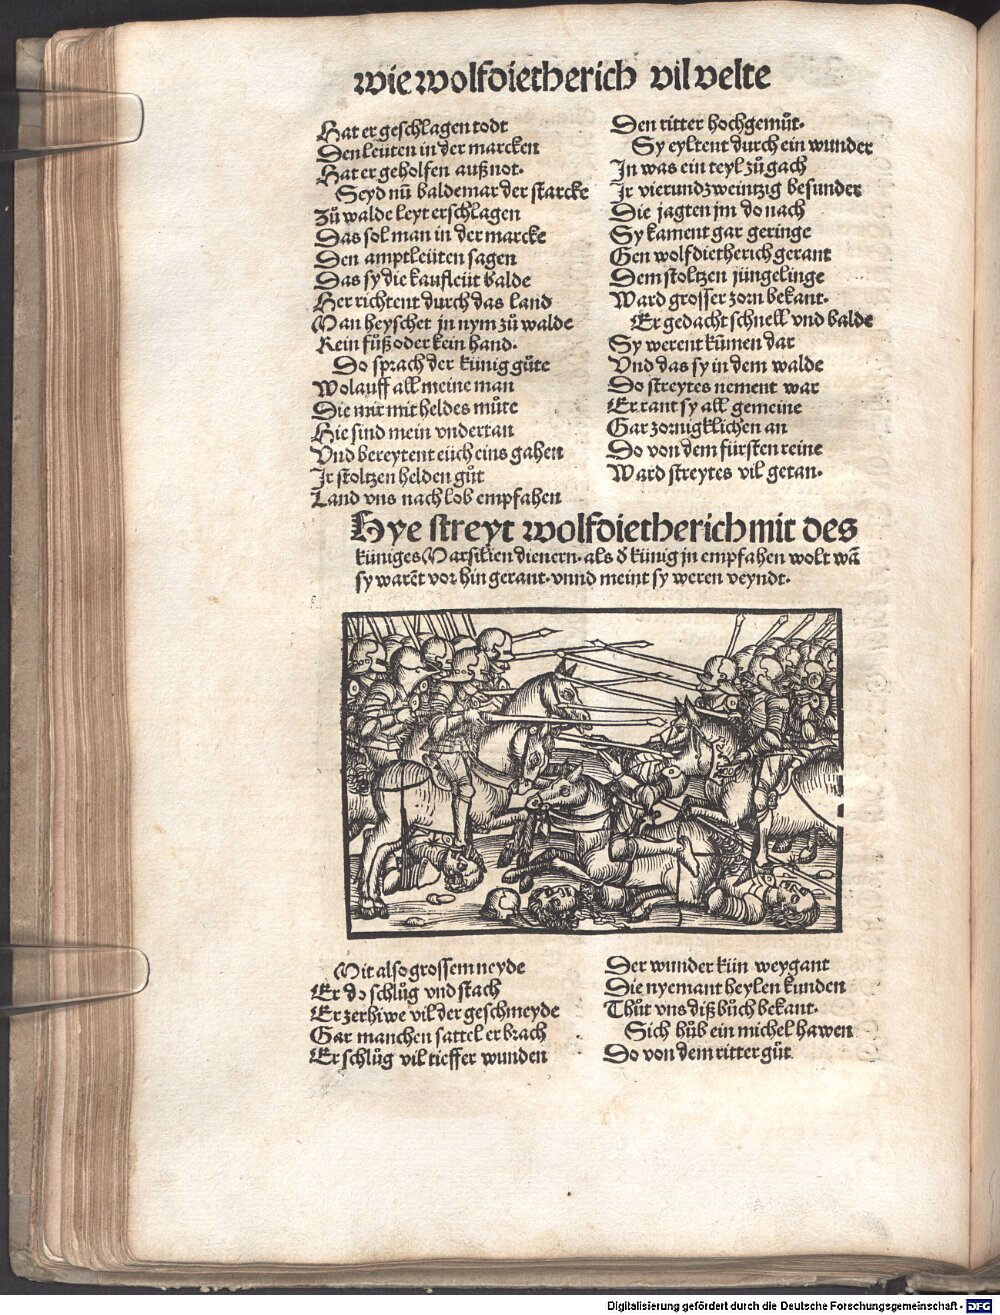 wie wolfdietherich vil velte
Hat er geschlagen todt
Den leüten in der marcken
Hat er geholfen außnot.
Seyd nů baldemar der starcke
Zů walde leyt erschlagen
Das sol man in der marcke
Den amptleüten sagen
Das sy die kaufleüt balde
Her richtent durch das land
Man heyschet jn nym zů walde
Kein fůß oder kein hand.
Do sprach der künig gůte
Wolauff all meine man
Die mir mit heldes můte
Hie sind mein vndertan
Vnd bereytent eüch eins gahen
Jr stoltzen helden gůt
Land vns nach lob empfahen
Den ritter hochgemůt.
Sy eyltent durch ein wunder
Jn was ein teyl zů gach
Jr vierundzweintzig besunder
Die jagten jm do nach
Sy kament gar geringe
Gen wolfdietherich gerant
Dem stoltzen jüngelinge
Ward grosser zorn bekant.
Er gedacht schnell vnd balde
Sy werent kůmen dar
Vnd das sy in dem walde
Do streytes nement war
Er rant sy all gemeine
Gar zornigklichen an
Do von dem fürsten reine
Ward streytes vil getan.
Hye streyt wolfdietherich mit des
küniges Marsilien dienern. als d̕ künig jn empfahen wolt wā
sy warēt vor hin gerant. vnnd meint sy weren veyndt.
Mit also grossem neyde
Er do schlůg vnd stach
Er zerhiwe vil der geschmeyde
Gar manchen sattel er brach
Er schlůg vil tieffer wunden
Der wunder kün weygant
Die nyemant heylen kunden
Thůt vns diß bůch bekant.
Sich hůb ein michel hawen
Do von dem ritter gůt
Digitalisierung gefördert durch die Deutsche Forschungsgemeinschaft - DFG